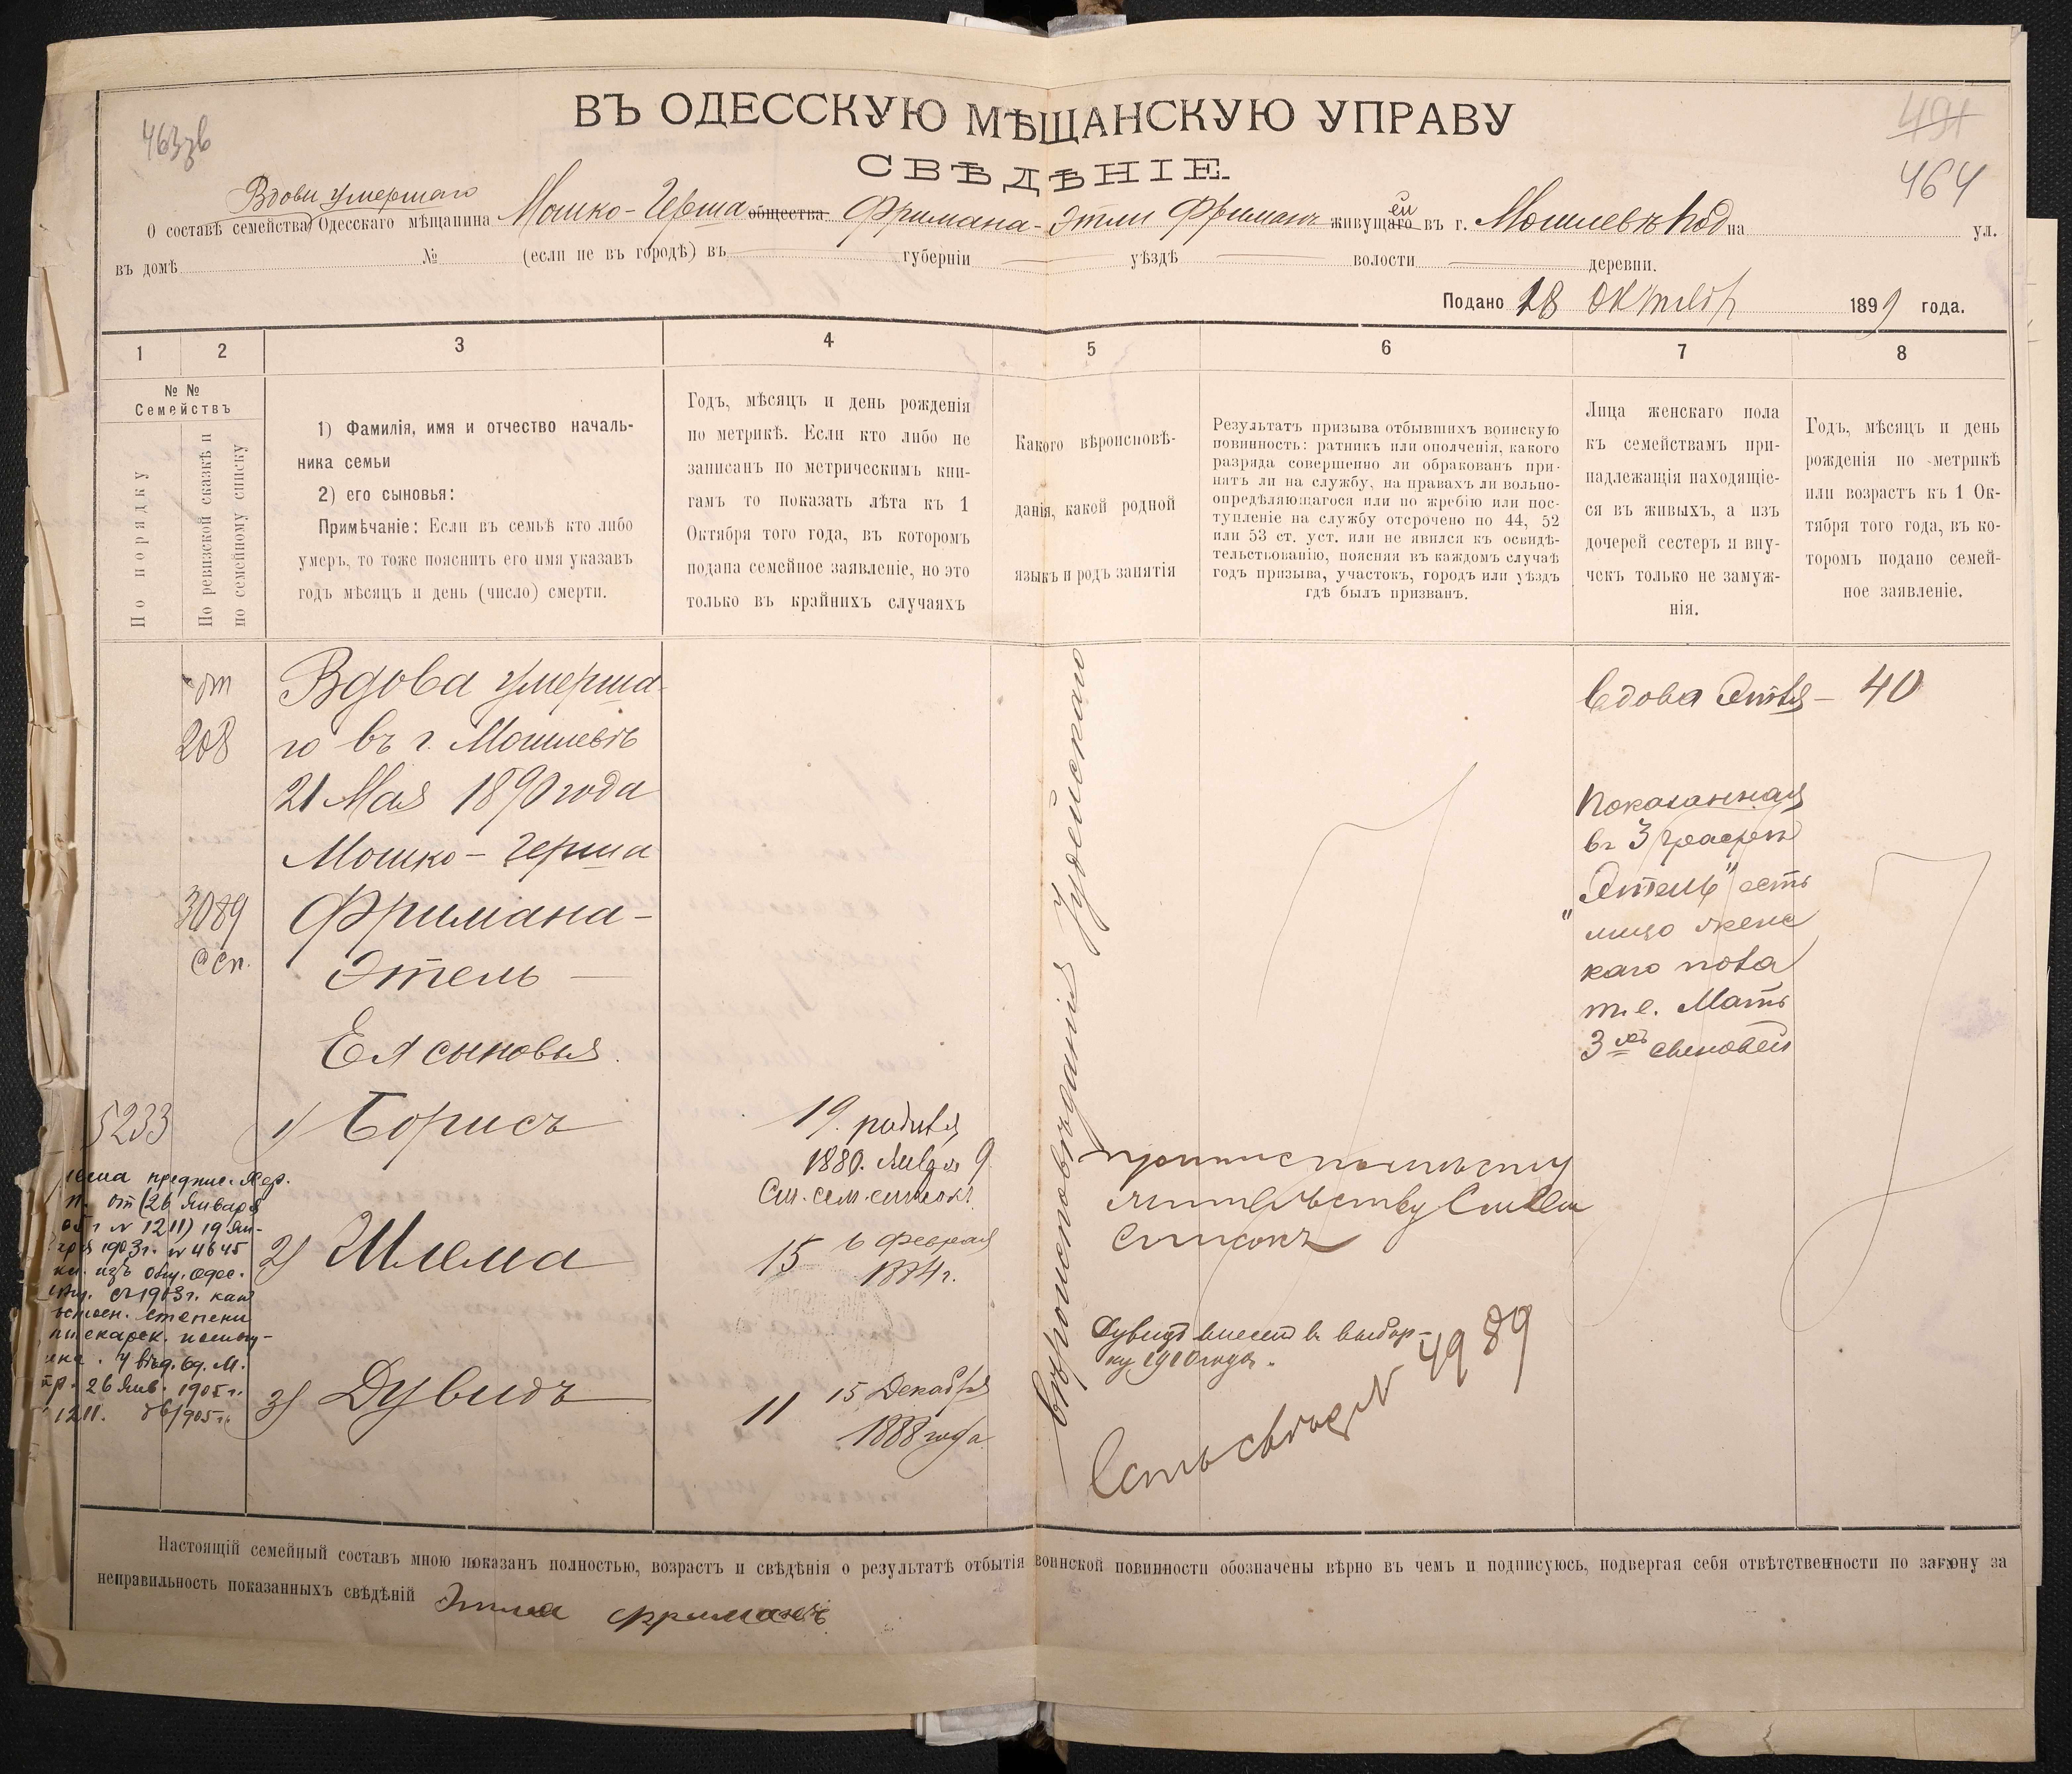 ВЪ ОДЕССКУЮ МѢЩАНСКУЮ УПРАВУ
463зв
491
464
СВѢДѢНІЕ
Вдовы умершаго
О составѣ семейства Одесскаго мѣщанина Мошко-Герша общества Фримана - Этли Фриманъ живущаго ей въ г. Могилевѣ Под на ул.
въ домѣ № (если не въ городѣ) въ губерніи уѣздѣ волости деревни.
Подано 18 Октября 1899 года.
1 2 3 4 5 6 7 8
№ №
Семействъ
По порядку
По ревизской сказкѣ и
по семейному списку
1) Фамилія, имя и отчество началь-
ника семьи
2) его сыновья:
Примѣчаніе: Если въ семьѣ кто либо
умеръ, то тоже пояснить его имя указавъ
годъ мѣсяцъ и день (число) смерти.
Годъ, мѣсяцъ и день рожденія
по метрикѣ. Если кто либо не
записанъ по метрическимъ кни-
гамъ то показать лѣта къ 1
Октября того года, въ которомъ
подана семейное заявленіе, но это
только въ крайнихъ случаяхъ
Какого вѣроисповѣ-
данія, какой родной
языкъ и родъ занятія
Результатъ призыва отбывшихъ воинскую
повинность: ратникъ или ополченія, какого
разряда совершенно ли обракованъ при-
нятъ ли на службу, на правахъ ли вольно-
опредѣляющагося или по жребію или пос-
тупленіе на службу отсрочено по 44, 52
или 53 ст. уст. или не явился къ освидѣ-
тельствованію, поясняя въ каждомъ случаѣ
годъ призыва, участокъ, городъ или уѣздъ
гдѣ былъ призванъ.
Лица женскаго пола
къ семействамъ при-
надлежащія находящіе-
ся въ живыхъ, а изъ
дочерей сестеръ и вну-
чекъ только не замуж-
нія.
Годъ, мѣсяцъ и день
рожденія по метрикѣ
или возрастъ къ 1 Ок-
тября того года, въ ко-
торомъ подано семей-
ное заявленіе.
от
208
3089
ссп.
Вдова умерша-
го въ г. Могилевѣ
21 Мая 1890 года
Мошко-Герша
Фримана -
Этель -
Ея сыновья.
5233
1) Борисъ
19. родився
1880. Января 9
См. сем. списокъ
2) Шлема
15 6 Февраля
1884 г.
3) Дувидъ
11 15 Декабря
1888 года
предпис. Хер.
от (26 Января
№ 1211) 19 Ян-
1903 г. № 4645
изъ общ. Одес.
съ 1903 г. какъ
степени
26 Янв. 1905 г.
1211. 1905 г.
вѣроисповѣданія Іудейскаго
Семейн
списокъ
Дувидъ внесен в выбор-
ку 1910 года.
Есть свѣд № 4989
Вдова Этля - 40
Показанная
въ 3 графѣ
„Этель" есть
лицо женс
каго пола
т. е. Мать
3хъ сыновей
Настоящій семейный составъ мною показанъ полностью, возрастъ и свѣдѣнія о результатѣ отбытія воинской повинности обозначены вѣрно въ чемъ и подписуюсь, подвергая себя отвѣтственности по закону за
неправильность показанныхъ свѣдѣній Этля Фриманъ